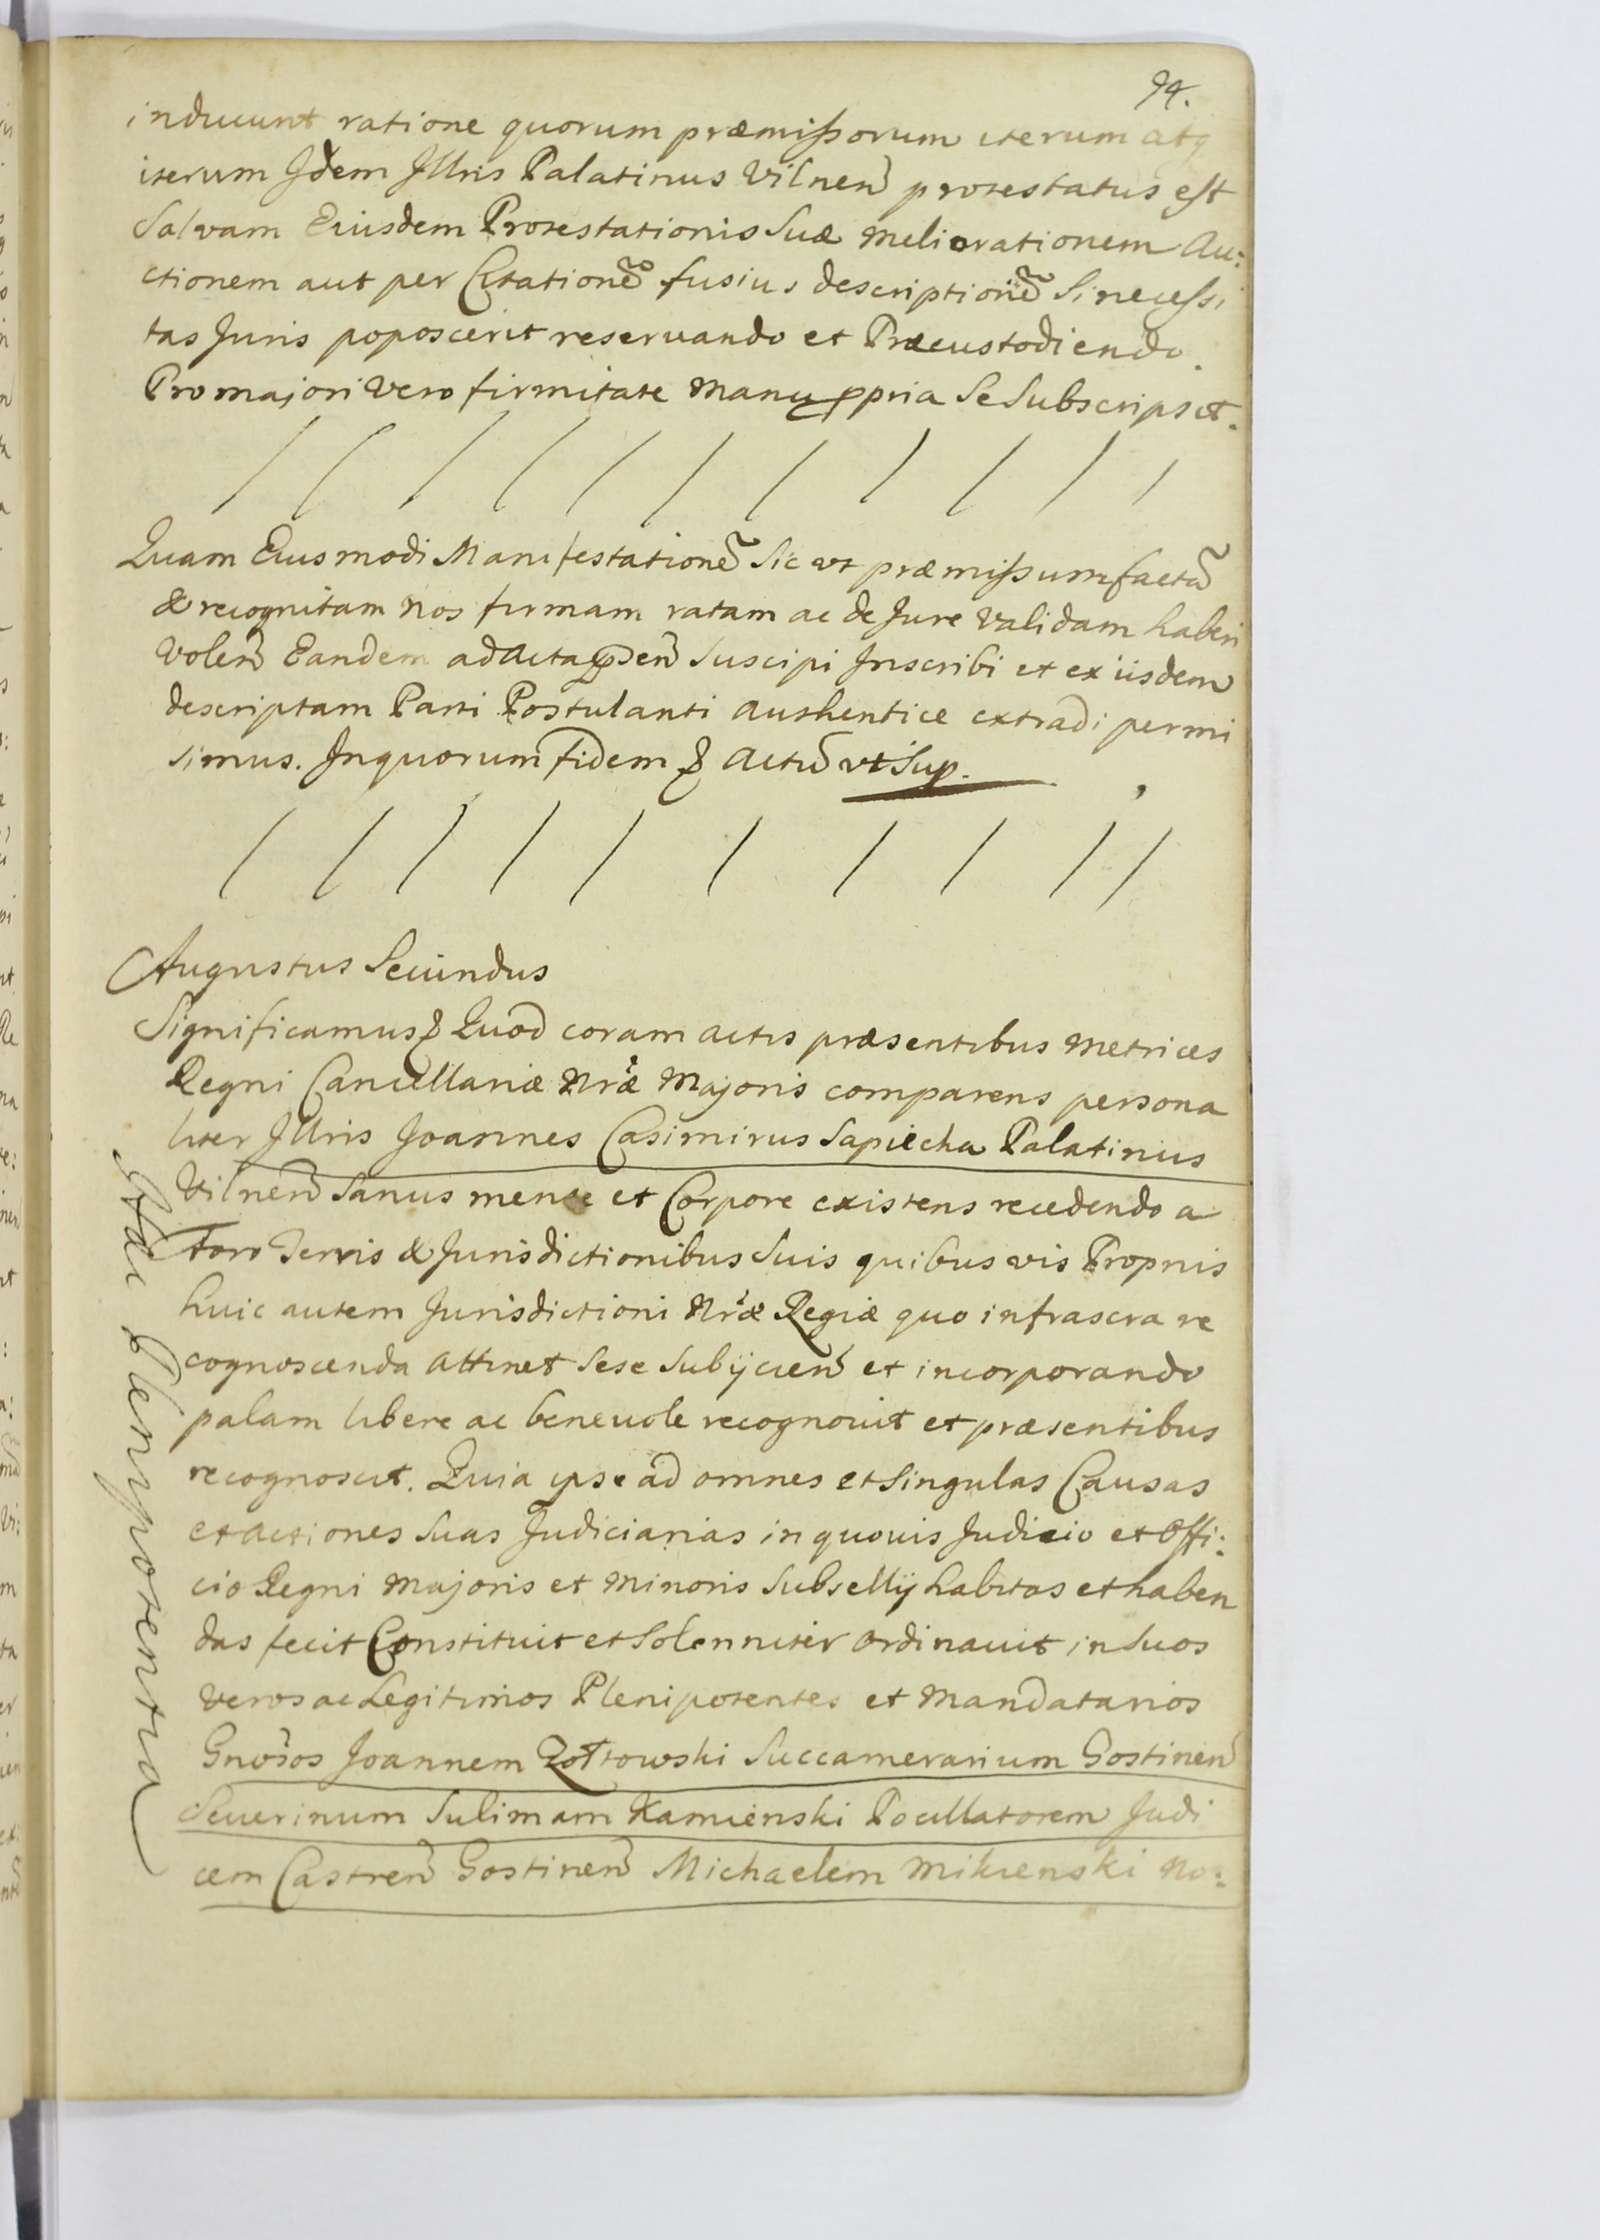 94.
inducunt ratione quorum præmissorum iterum atq
iterum Idem Illris Palatinus Vilnen̄ protestatus est
Salvam Eiusdem Protestationis Suæ meliorationem Au:
ctionem aut per Citationē fusius descriptionē Si necessi
tas Juris poposcerit reservando et Præcustodiendo.
Pro majori vero firmitate manu ppria Se Subscripsit.
Quam Eiusmodi Manifestationē Sic ut præmissum factā
& recognitam nos firmam ratam ac de Jure validam haberi
volen̄ Eandem ad Acta pden̄ Suscipi Inscribi et ex iisdem
descriptam Parti Postulanti authentice extradi permi
simus. In quorum fidem & Actū ut Sup.
Augustus Secundus
Significamus & Quod coram actis præsentibus Metrices
Regni Cancellariæ Nræ Majoris comparens persona
liter Illris Joannes Casimirus Sapiecha Palatinus
Vilnen̄ Sanus mente et Corpore existens recedendo a
Foro Terris & Jurisdictionibus Suis quibus vis Proprijs
huic autem Jurisdictioni Nræ Regiæ quo infrascra re
cognoscenda attinet Sese Subijcien̄ et incorporando
palam libere ac benevole recognovit et præsentibus
recognoscit. Quia ipse ad omnes et Singulas Causas
et actiones Suas Judiciarias in quovis Judicio et Offi:
cio Regni Majoris et Minoris Subsellij habitas et haben
das fecit Constituit et Solenniter ordinavit in Suos
veros ac Legitimos Plenipotentes et Mandatarios
Gnosos Joannem Zołtowski Succamerarium Gostinen̄
Severinum Sulimam Kamienski Pocillatorem Judi
cem Castren̄ Gostinen̄ Michaelem Mikienski No:
Plenipotentia